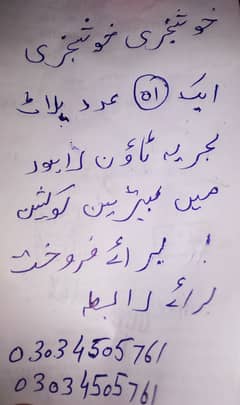 خوشخبری خوشخبری
ایک 01 عدد پلاٹ
بحریہ ٹاؤن لاہور
میں بہترین لوکیشن
برائے فروخت
برائے رابطہ
03034505761
03034505761